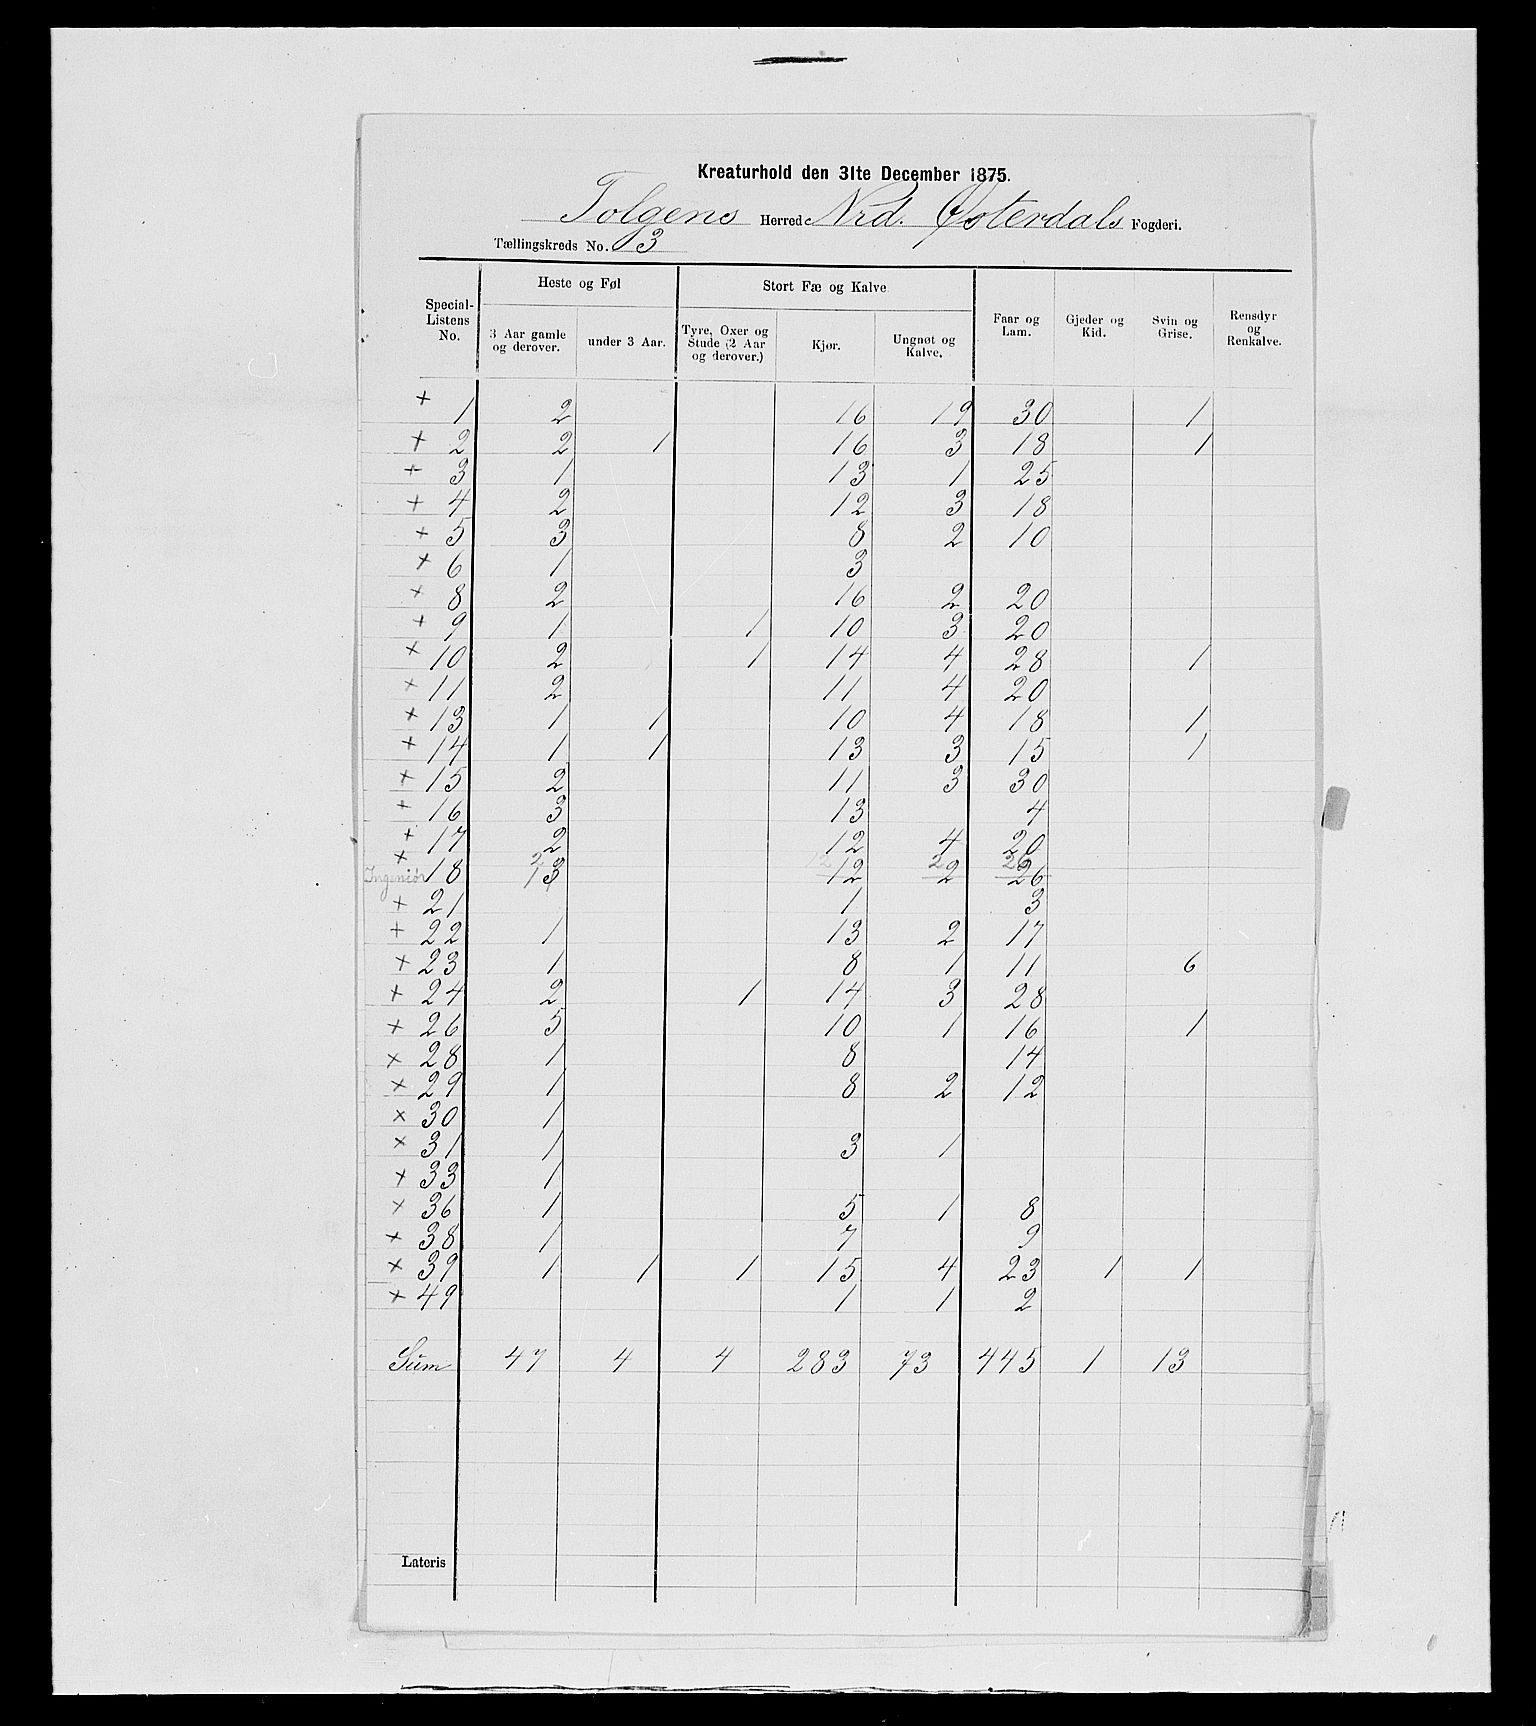 Kreaturhold den 31te December 1875.
Tolgens Herrede Nrd. Østerdals Fogderi.
Tællingskreds No. 3
Special-Listens No. | Heste og Føl: 3 Aar gamle og derover. | under 3 Aar. | Stort Fæ og Kalve: Tyre, Oxer og Stude (2 Aar og derover.) | Kjør. | Ungnøt og Kalve. | Faar og Lam. | Gjeder og Kid. | Svin og Grise. | Rensdyr og Renkalve.
+ 1 | 2 | | | 16 | 19 | 30 | | 1 |
+ 2 | 2 | 1 | | 16 | 3 | 18 | | 1 |
+ 3 | 1 | | | 13 | 1 | 25 | | |
+ 4 | 2 | | | 12 | 3 | 18 | | |
+ 5 | 3 | | | 8 | 2 | 10 | | |
+ 6 | 1 | | | 3 | | | | |
+ 8 | 2 | | | 16 | 2 | 20 | | |
+ 9 | 1 | | 1 | 10 | 3 | 20 | | |
+ 10 | 2 | | 1 | 14 | 4 | 28 | | 1 |
+ 11 | 2 | | | 11 | 4 | 20 | | |
+ 13 | 1 | 1 | | 10 | 4 | 18 | | 1 |
+ 14 | 1 | 1 | | 13 | 3 | 15 | | 1 |
+ 15 | 2 | | | 11 | 3 | 30 | | |
+ 16 | 3 | | | 13 | | 4 | | |
+ 17 | 2 | | | 12 | 4 | 20 | | |
+ Ingeniør 18 | 2 1 3 | | | 12 12 | 2 2 | 26 26 | | |
+ 21 | | | | 1 | | 3 | | |
+ 22 | 1 | | | 13 | 2 | 17 | | |
+ 23 | 1 | | | 8 | 1 | 11 | | 6 |
+ 24 | 2 | | 1 | 14 | 3 | 28 | | |
+ 26 | 5 | | | 10 | 1 | 16 | | 1 |
+ 28 | 1 | | | 8 | | 14 | | |
+ 29 | 1 | | | 8 | 2 | 12 | | |
+ 30 | 1 | | | | | | | |
+ 31 | 1 | | | 3 | 1 | | | |
+ 33 | 1 | | | | | | | |
+ 36 | 1 | | | 5 | 1 | 8 | | |
+ 38 | 1 | | | 7 | | 9 | | |
+ 39 | 1 | 1 | 1 | 15 | 4 | 23 | 1 | 1 |
+ 49 | | | | 1 | 1 | 2 | | |
Sum | 47 | 4 | 4 | 283 | 73 | 445 | 1 | 13 |
Lateris